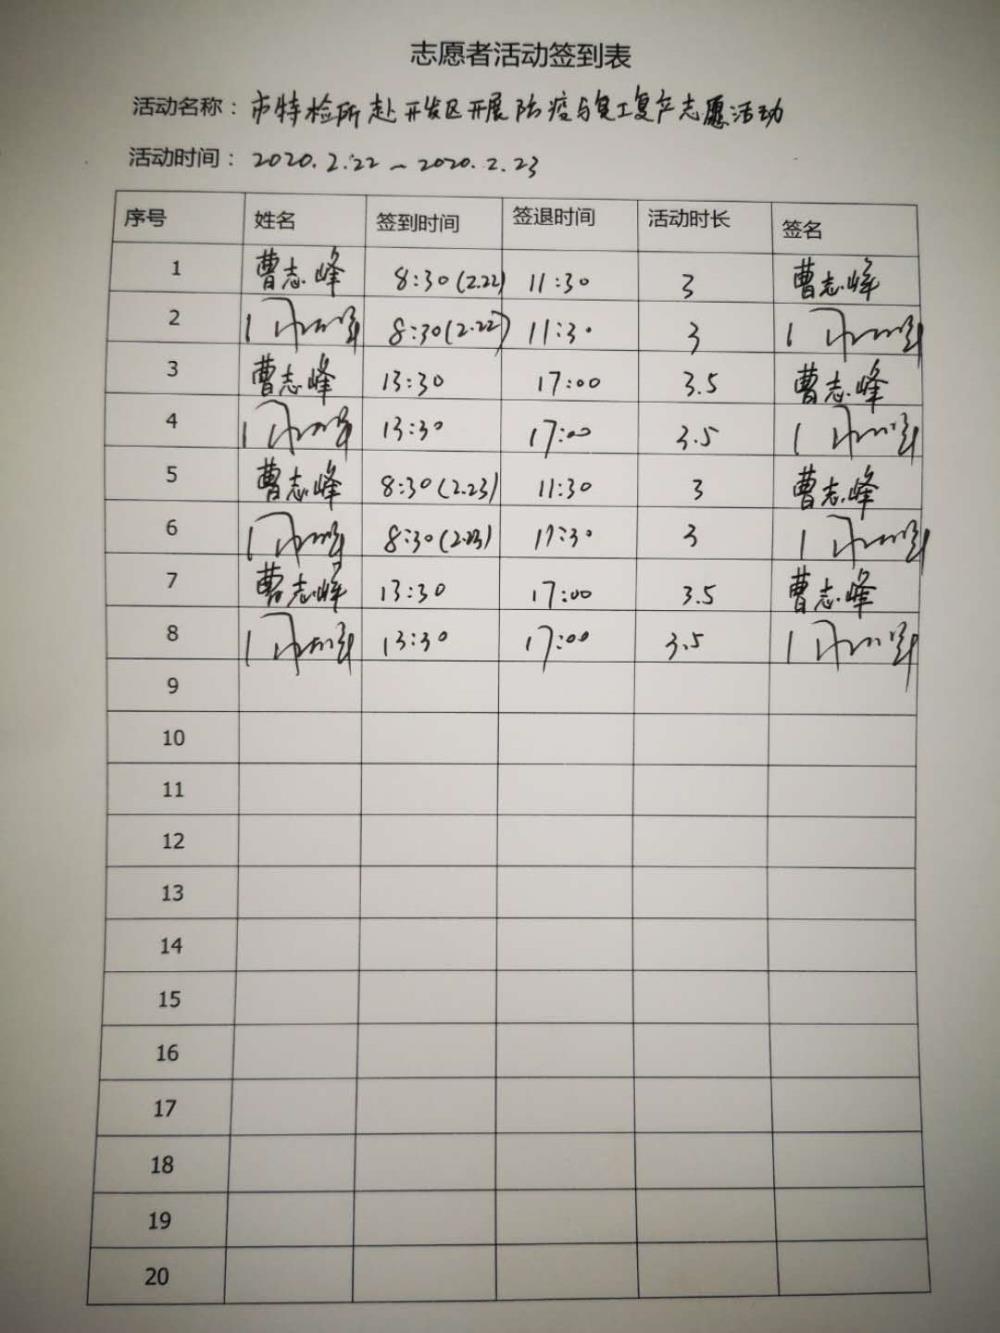 志愿者活动签到表
活动名称：市特检所赴开发区开展防疫与复工复产志愿活动
活动时间：2020.2.22~2020.2.23
序号 姓名 签到时间 签退时间 活动时长 签名
1 曹志峰 8:30(2.22) 11:30 3 曹志峰
2 8:30(2.22) 11:30 3
3 曹志峰 13:30 17:00 3.5 曹志峰
4 13:30 17:00 3.5
5 曹志峰 8:30(2.23) 11:30 3 曹志峰
6 8:30(2.23) 11:30 3
7 曹志峰 13:30 17:00 3.5 曹志峰
8 13:30 17:00 3.5
9
10
11
12
13
14
15
16
17
18
19
20